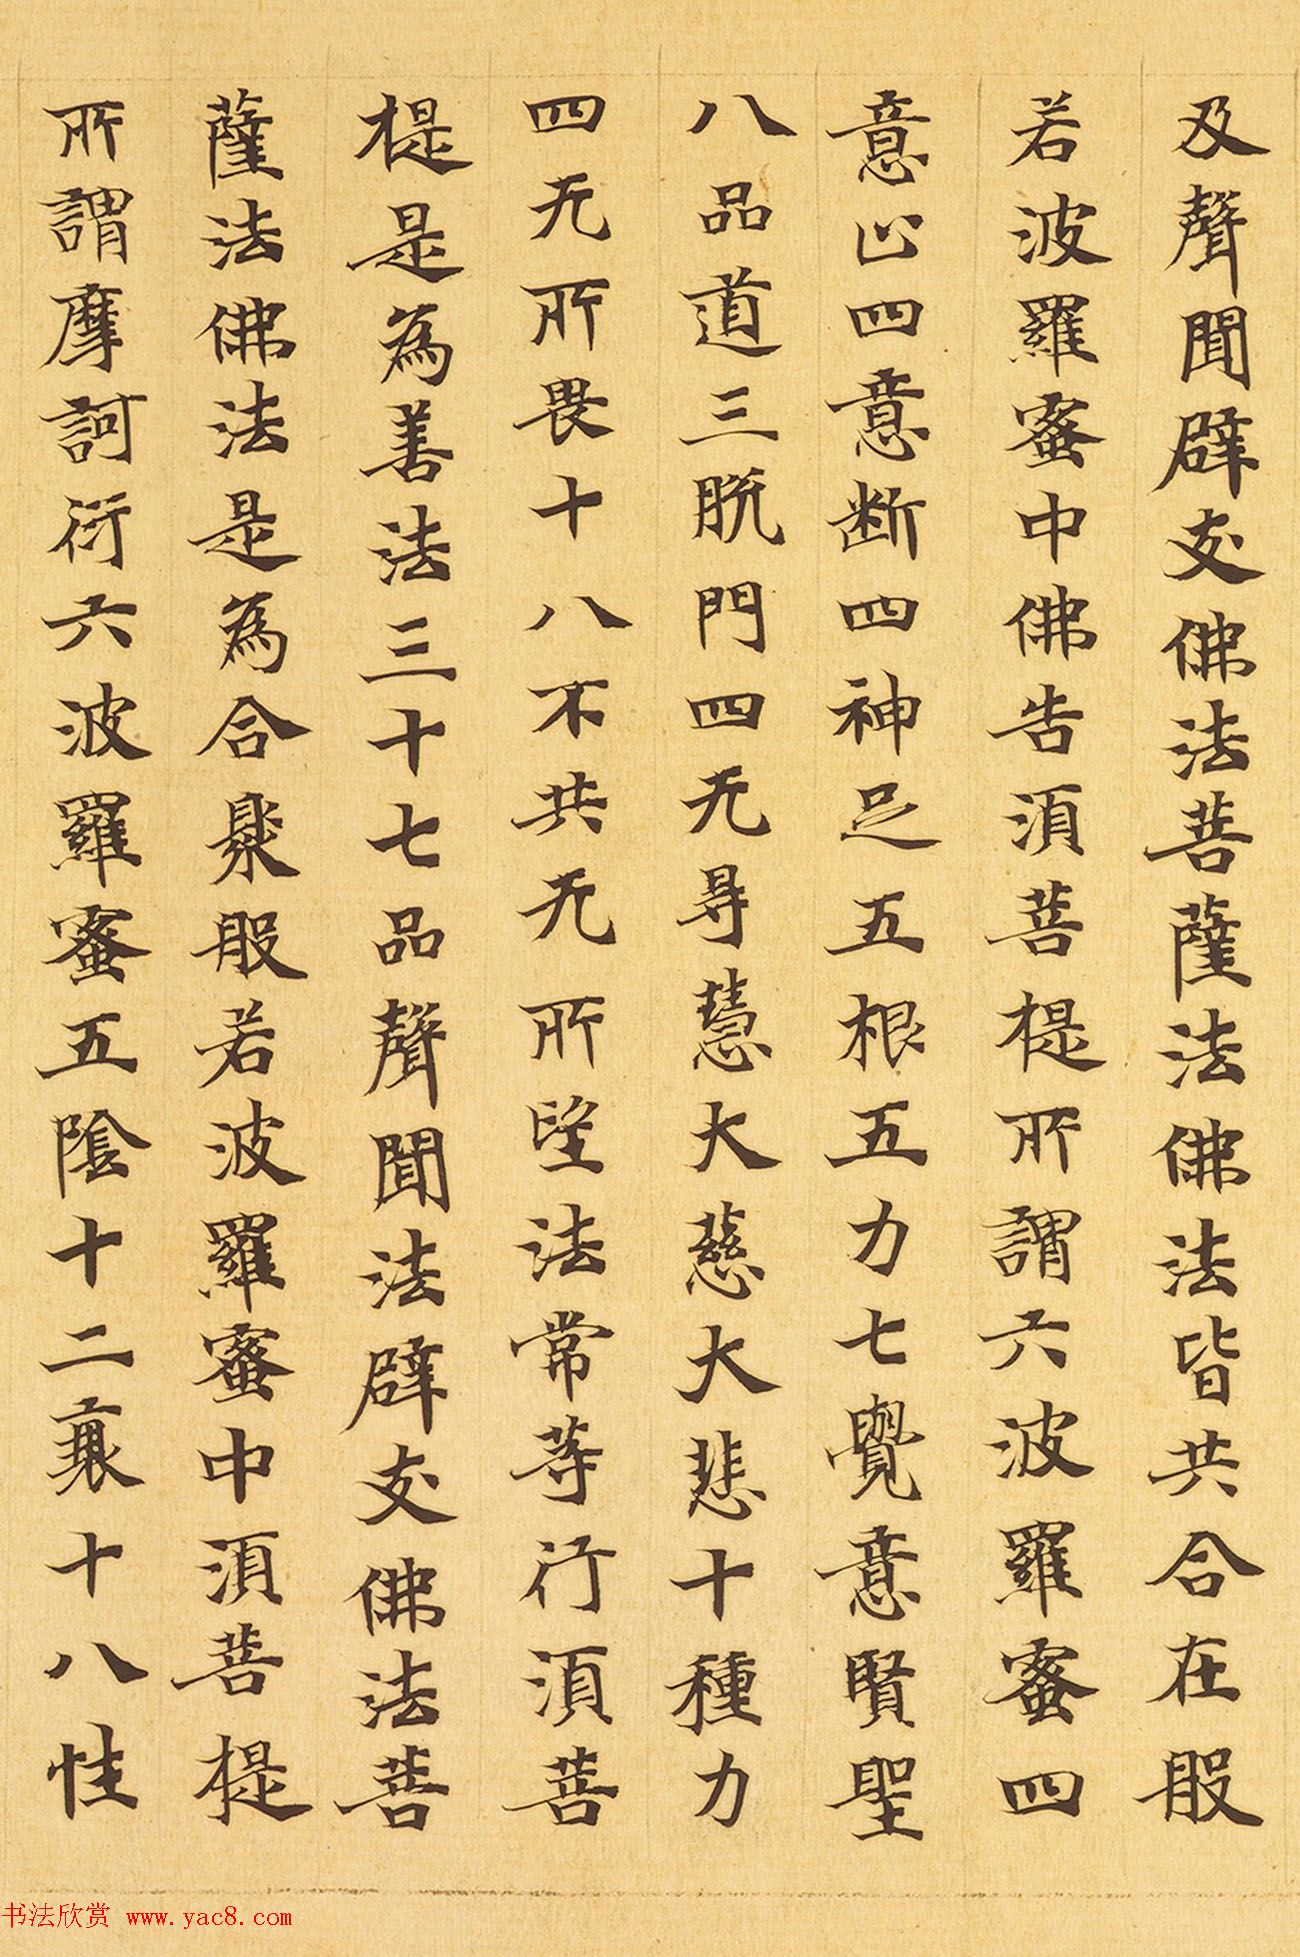 及聲聞辟支佛法菩薩法佛法皆共合在般
若波羅蜜中佛告須菩提所謂六波羅蜜四
意止四意斷四神足五根五力七覺意賢聖
八品道三脫門四无㝵慧大慈大悲十種力
四无所畏十八不共无所望法常等行須菩
提是為善法三十七品聲聞法辟支佛法菩
薩法佛法是為合聚般若波羅蜜中須菩提
所謂摩訶衍六波羅蜜五陰十二衰十八性
书法欣赏 www.yac8.com